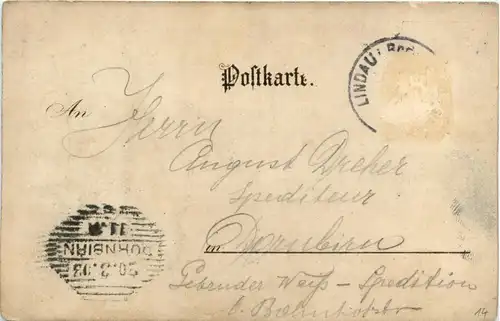 Postkarte.
LINDAU
An Herrn
August Dreher
Spediteur
in Dornbirn
Gebrüder Weiß - Spedition
DORNBIRN
14